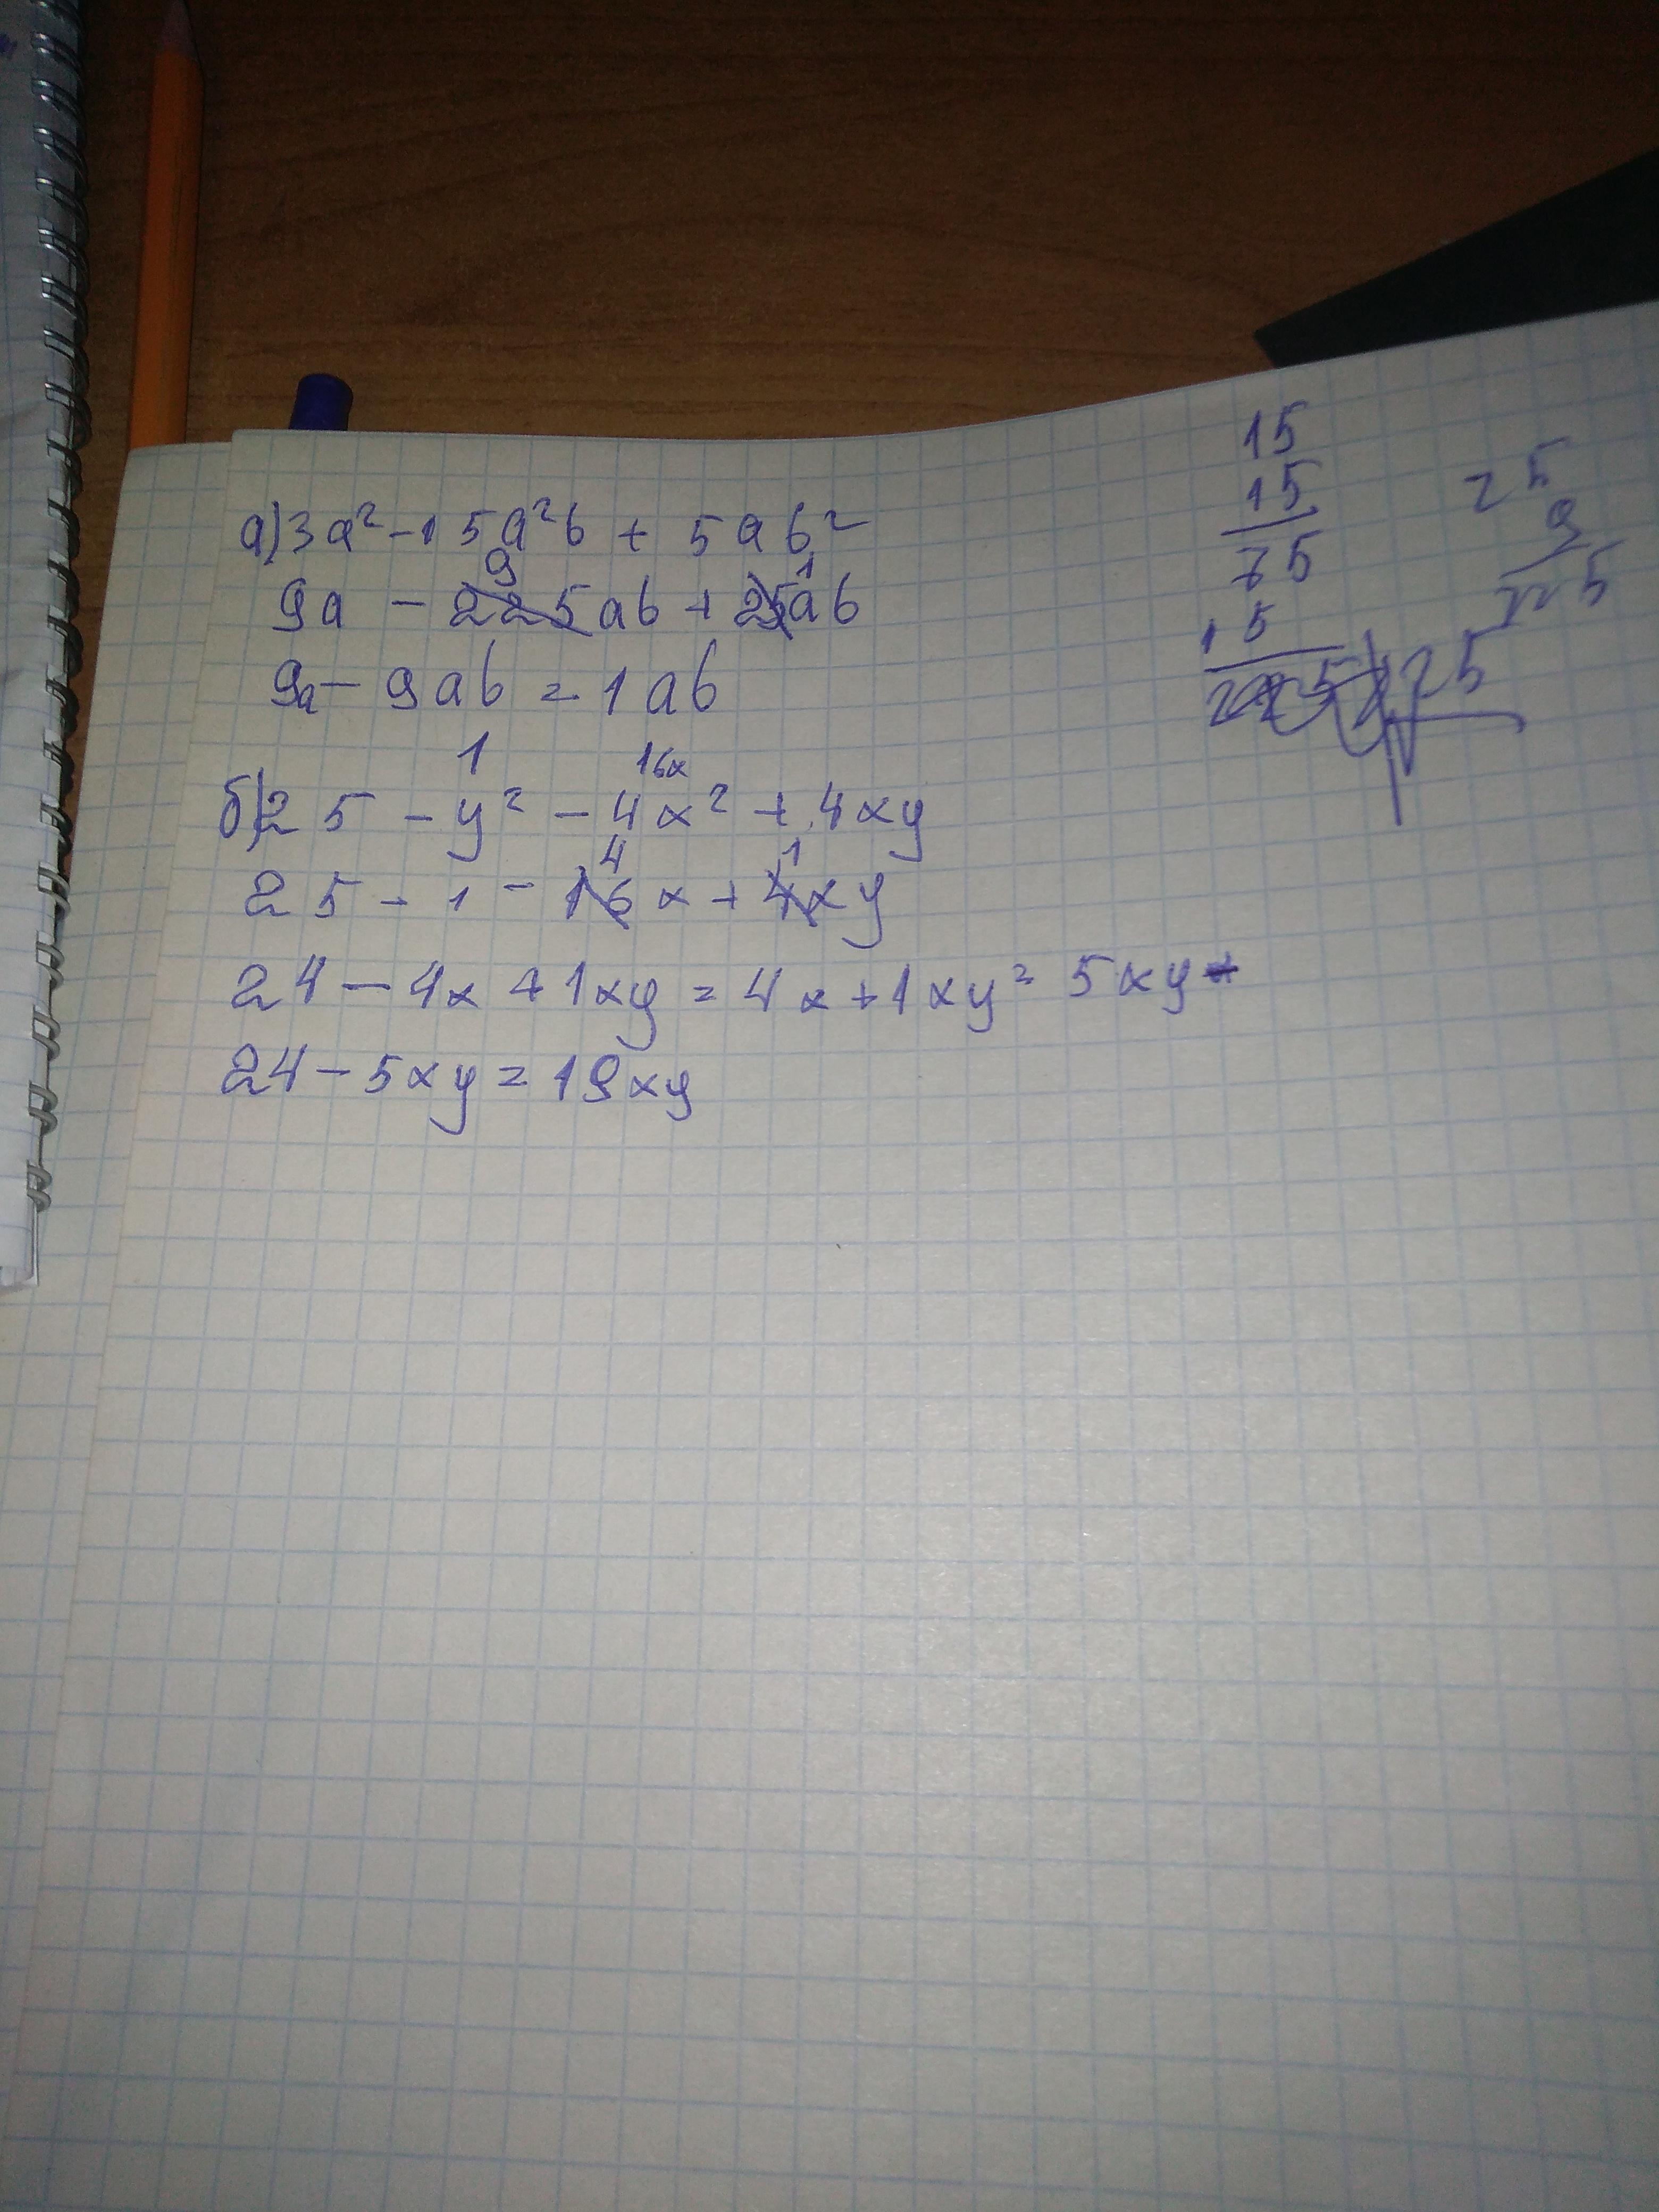 а) 3a² - 15a²b + 5ab²
9
1
9a - 225ab + 25ab
9a - 9ab = 1ab
1
16x
б) 25 - y² - 4x² + 4xy
4
1
25 - 1 - 16x + 4xy
24 - 4x + 1xy = 4x + 1xy = 5xy
24 - 5xy = 19xy
15
15
75
15
225
25
25
9
225